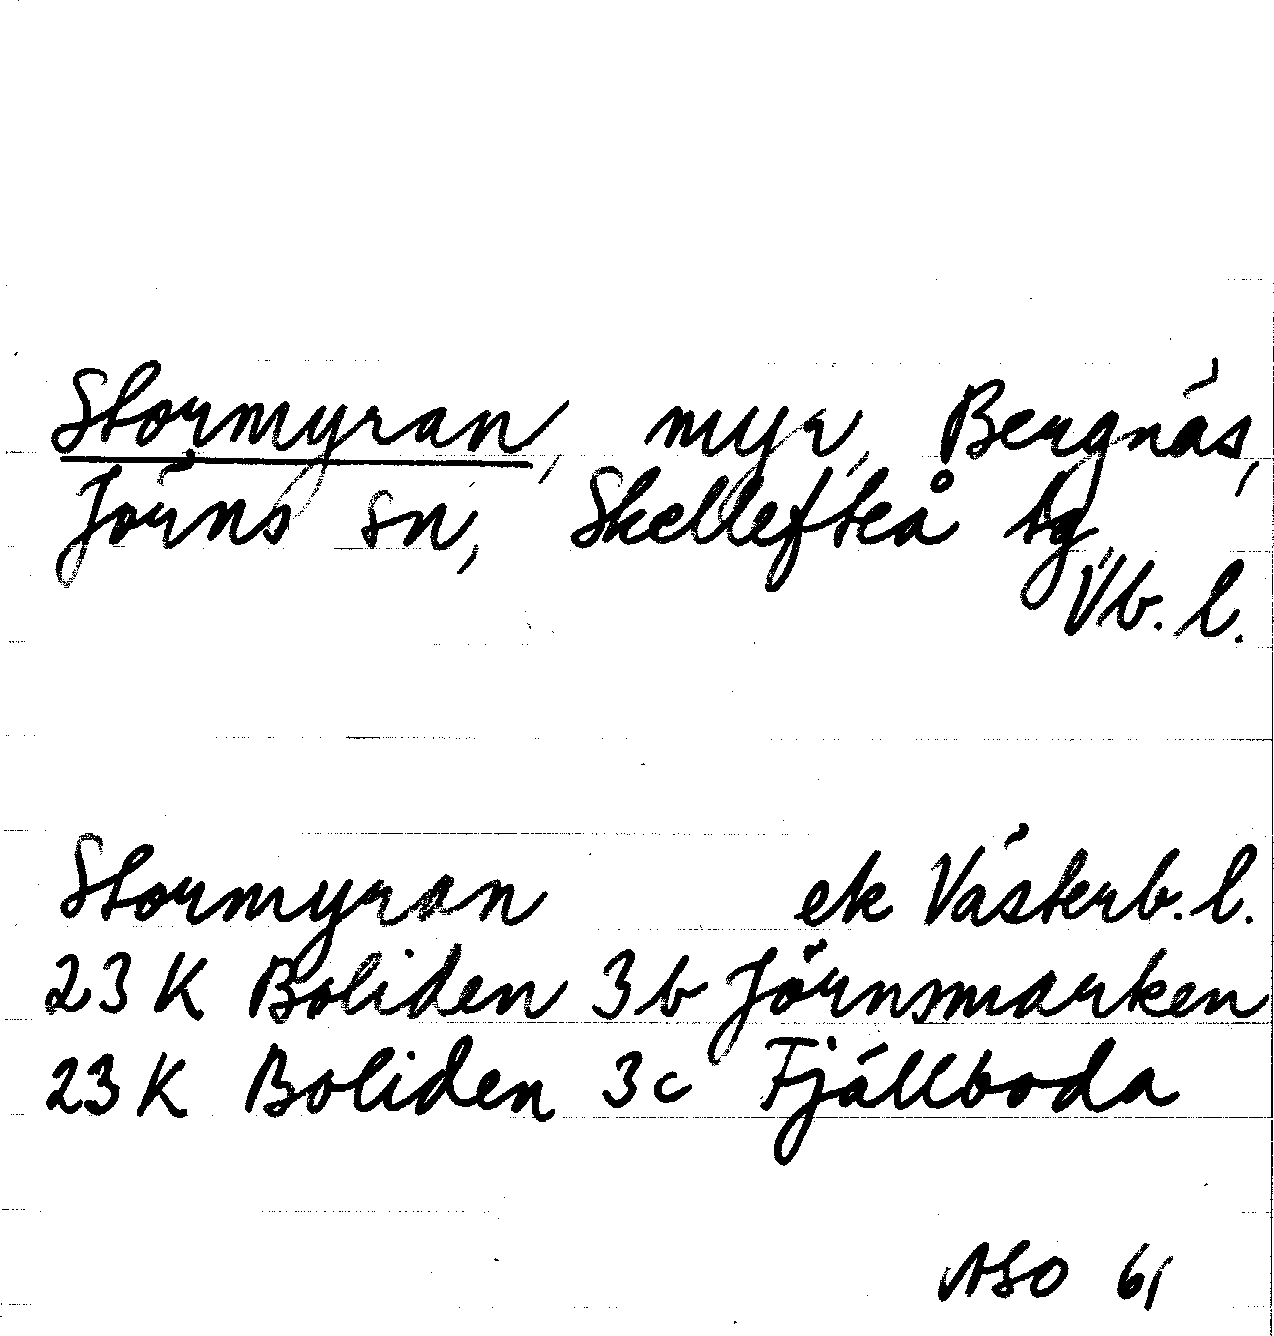 Stormyran, myr, Bergnäs,
Jörns sn, Skellefteå tg,
Vb. l.
Stormyran ek Västerb. l.
23 K Boliden 3b Jörnsmarken
23 K Boliden 3c Fjällboda
ASO 61